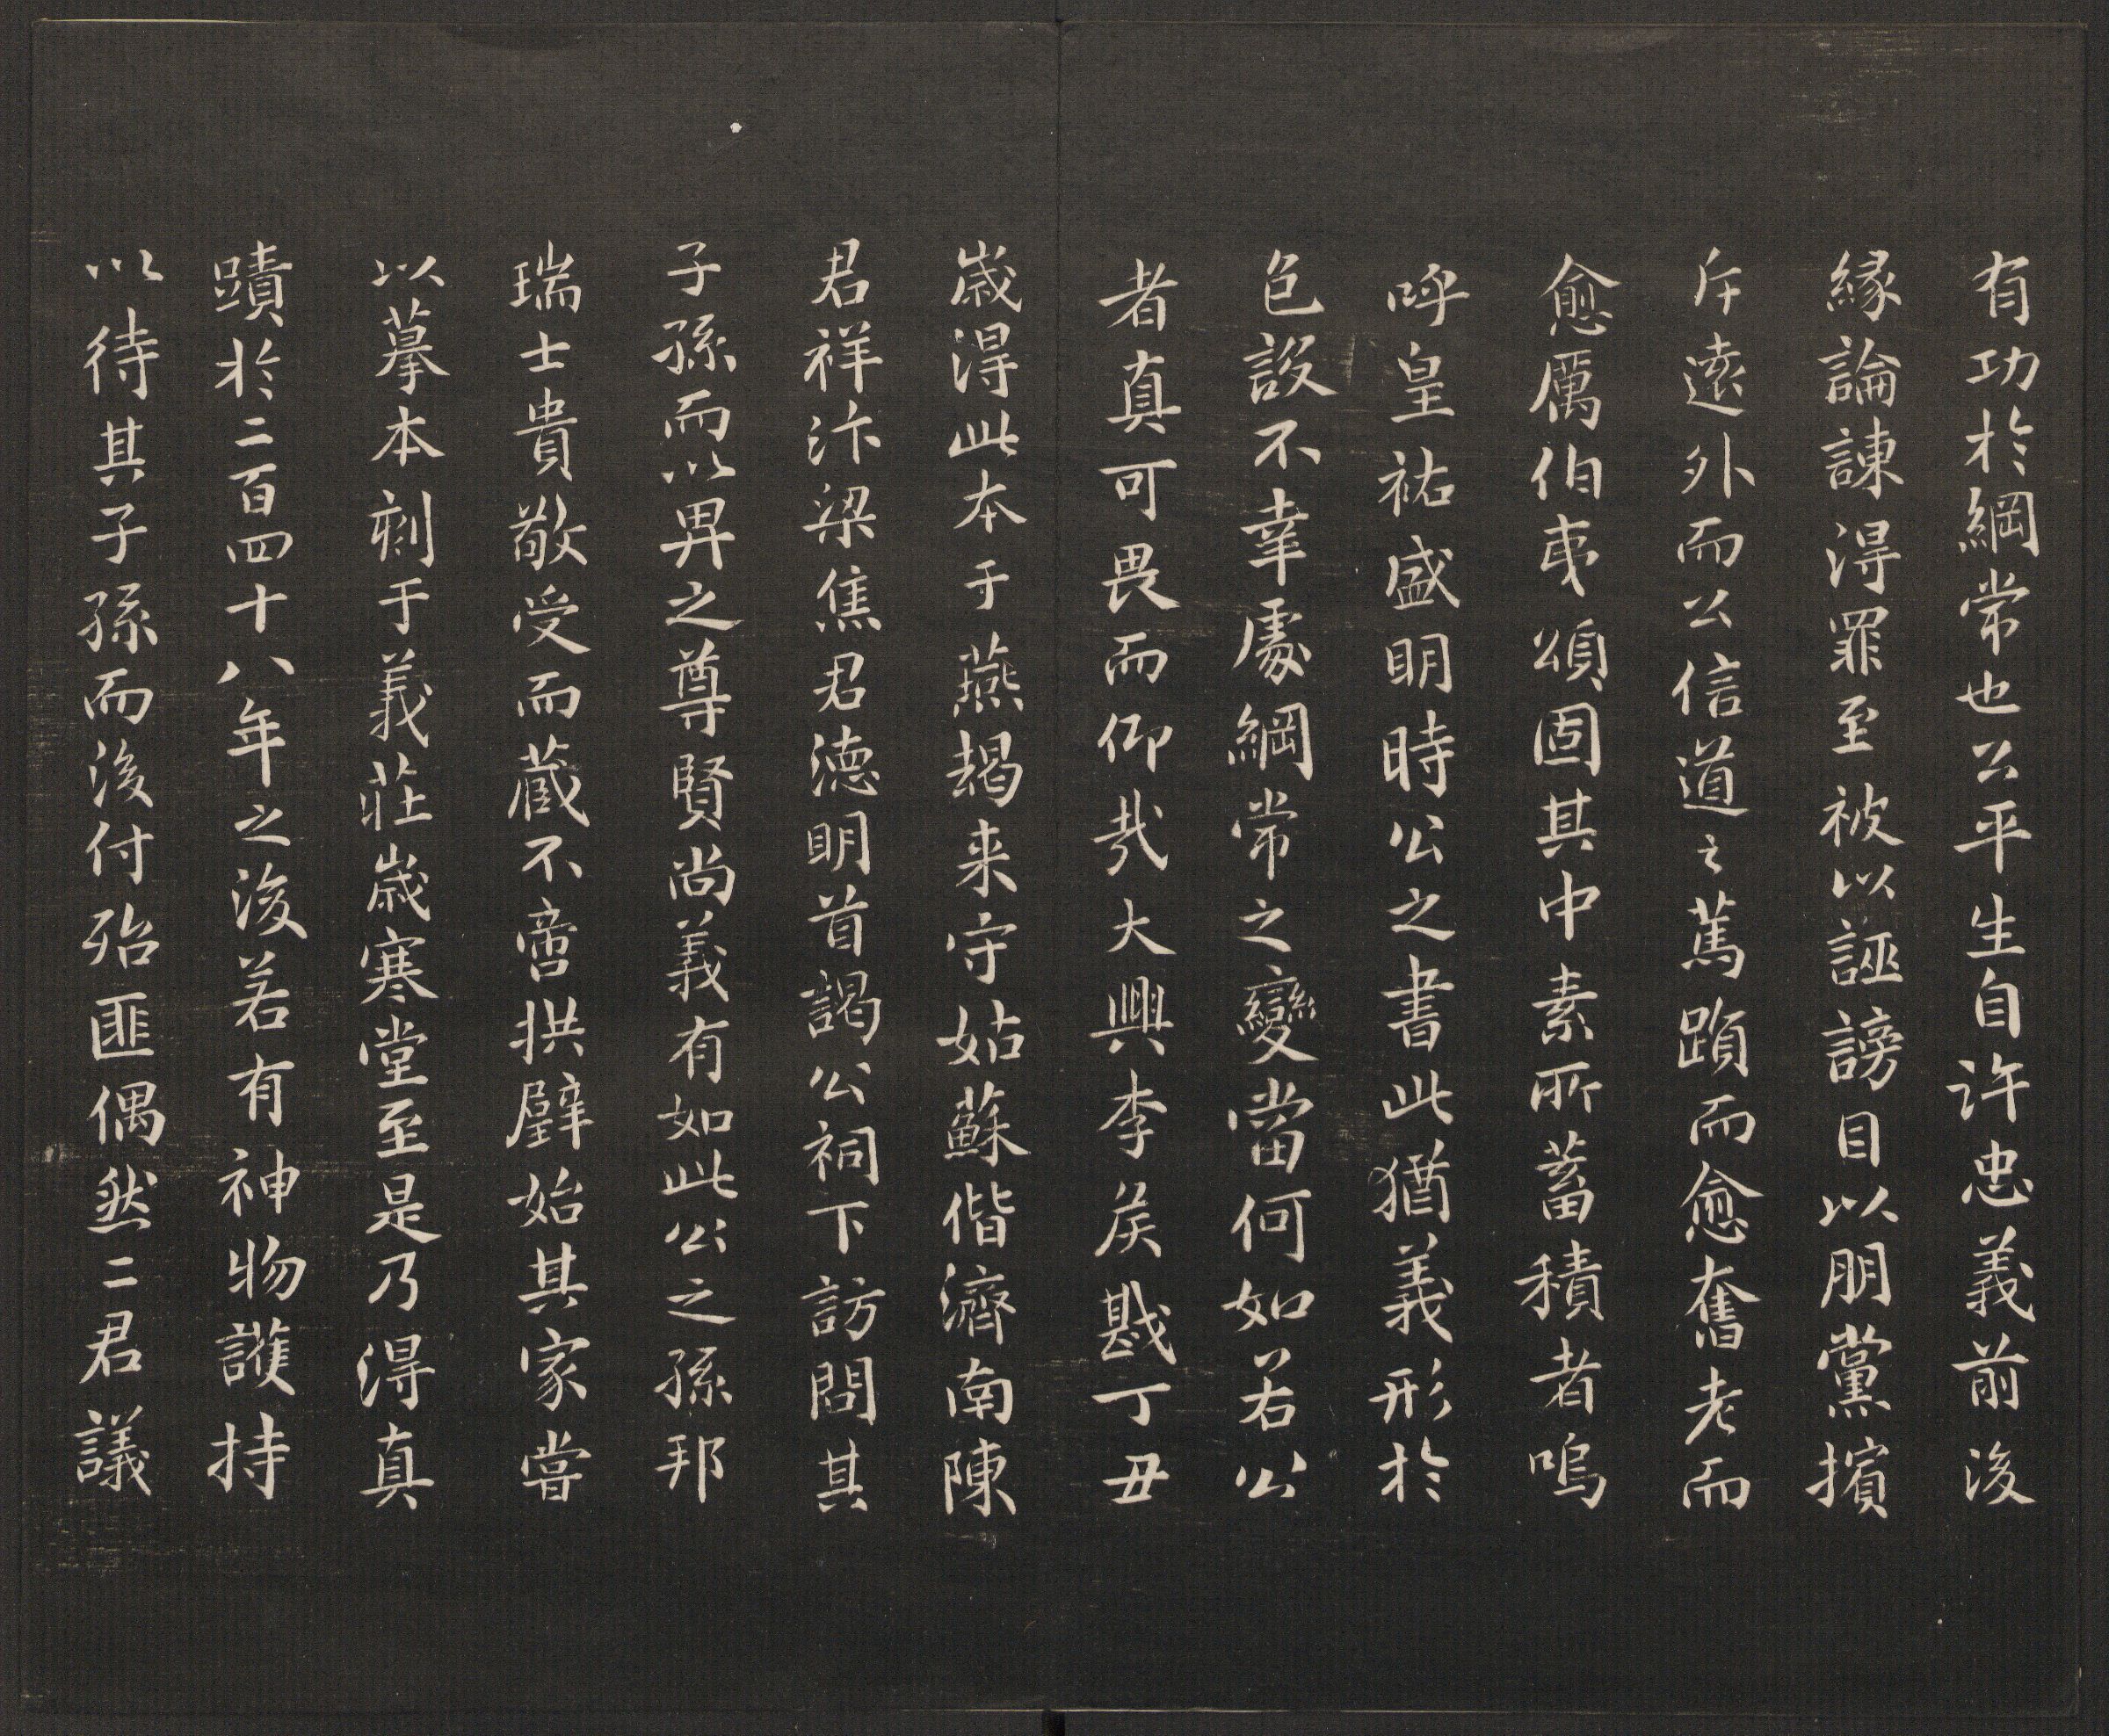 有功於綱常也公平生自許忠義前後
縁論諫得罪至被以誣謗目以朋黨擯
斥遠外而公信道之篤蹟而愈奮老而
愈厲伯夷頌固其中素所蓄積者嗚
呼皇祐盛明時公之書此猶義形於
色設不幸處綱常之變當何如若公
者真可畏而仰哉大興李侯戡丁丑
歳得此本于燕朅来守姑蘇偕濟南陳
君祥汴梁焦君德明首謁公祠下訪問其
子孫而以畀之尊賢尚義有如此公之孫邦
瑞士貴敬受而蔵不啻拱璧始其家嘗
以摹本刻于義莊歳寒堂至是乃得真
蹟於二百四十八年之後若有神物護持
以待其子孫而後付殆匪偶然二君議